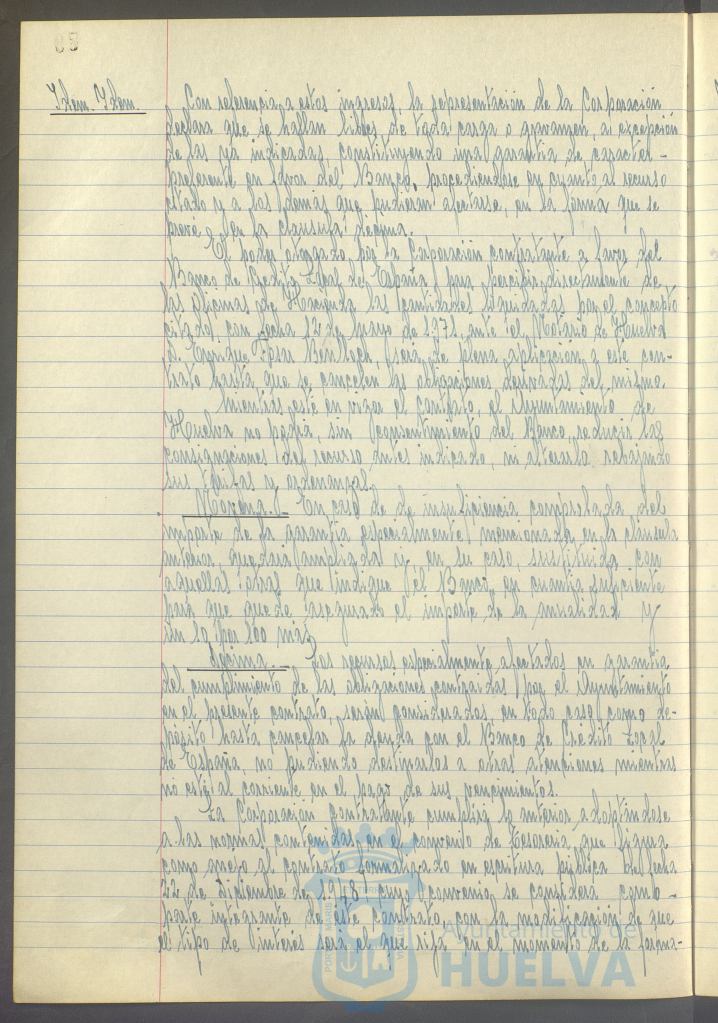 Ydem. Ydem.
Con referencia a estos ingresos, la representación de la Corporación
declara que se hallan libres de toda carga o gravamen, a excepción
de las ya indicadas, constituyendo una garantía de caracter -
preferente en favor del Banco, procediendose en cuanto al recurso
citado y a los demás que pudieran afectarse, en la forma que se
prevé en la clausula decima.
El poder otorgado por la Corporación contratante a favor del
Banco de Credito Local de España, para percibir directamente de
las oficinas de Hacienda las cantidades liquidadas por el concepto
citado, con fecha 12 de mayo de 1971, ante el Notario de Huelva
D. Enrique, será de plena aplicación a este con-
trato hasta que se cancelen las obligaciones derivadas del mismo.
Mientras esté en vigor el contrato, el Ayuntamiento de
Huelva no podrá, sin consentimiento del Banco, reducir las
consignaciones del recurso antes indicado, ni alterarlo rebajando
sus tarifas u ordenanzas.
Novena.- En caso de de insuficiencia comprobada del
importe de la garantía especialmente mencionada en la cláusula
anterior, quedará ampliada y, en su caso, sustituida con
aquellas otras que indique el Banco, en cuantía suficiente
para que quede asegurado el importe de la anualidad y
un 10 por 100 más.
Décima.- Los recursos especialmente afectados en garantía
del cumplimiento de las obligaciones contraidas por el Ayuntamiento
en el presente contrato, serán considerados, en todo caso, como de-
pósito hasta cancelar la deuda con el Banco de Crédito Local
de España, no pudiendo destinarlos a otras atenciones mientras
no esté al corriente en el pago de sus vencimientos.
La Corporación contratante cumplirá lo anterior adaptándose
a las normas contenidas en el convenio de tesoreria que figura
como anejo al contrato formalizado en escritura pública de fecha
22 de Diciembre de 1948, cuyo convenio se considera como -
parte integrante de este contrato, con la modificación de que
el tipo de interés será el que rija en el momento de la forma-
Ayuntamiento de
HUELVA